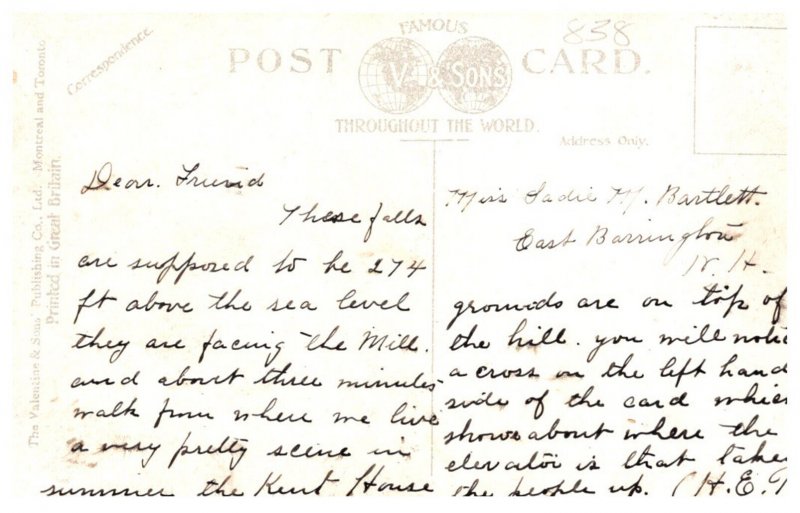 838
FAMOUS
POST CARD.
V. & SONS
THROUGHOUT THE WORLD.
Correspondence.
Address Only.
The Valentine & Sons' Publishing Co., Ltd. Montreal and Toronto
Printed in Great Britain.
Dear. Friend
These falls
are supposed to be 274
ft above the sea level
they are facing the Mill.
and about three minutes
walk from where we live
a very pretty scene in
summer the Kent House
Miss Sadie M. Bartlett.
East Barrington
N. H.
grounds are on top of
the hill. you will notic
a cross on the left hand
side of the card which
shows about where the
elevator is that take
the people up. (H.E.